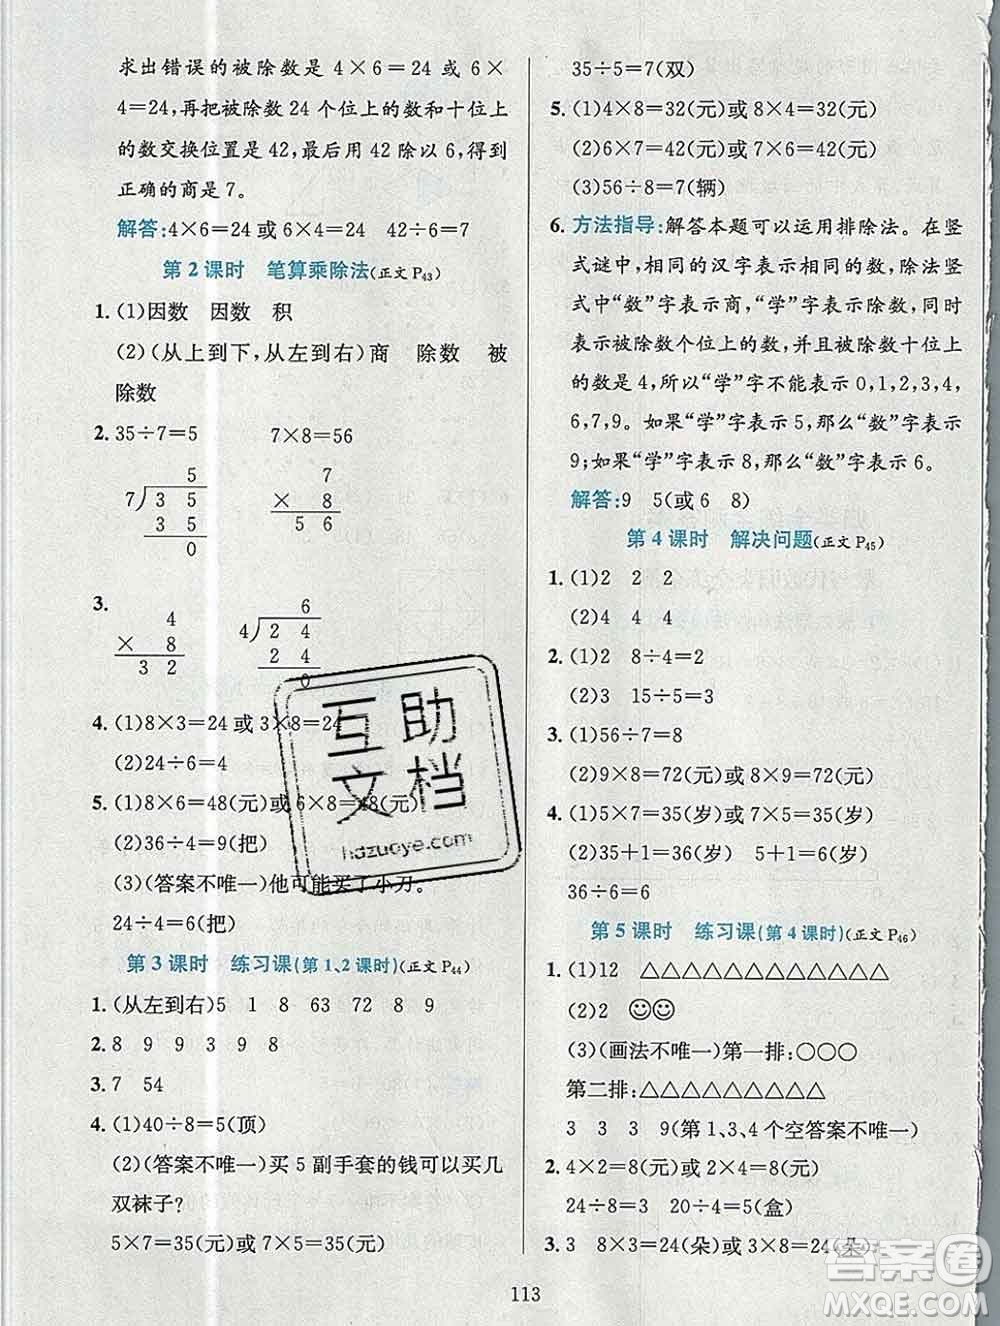 求出错误的被除数是 4×6=24 或 6×
4=24,再把被除数 24 个位上的数和十位上
的数交换位置是 42,最后用 42 除以 6,得到
正确的商是 7。
解答:4×6=24 或 6×4=24 42÷6=7
第 2 课时 笔算乘除法(正文 P43)
1. (1)因数 因数 积
(2)(从上到下,从左到右)商 除数 被
除数
2. 35÷7=5 7×8=56
5
7)3 5
3 5
0
7
× 8
5 6
3.
4
× 8
3 2
6
4)2 4
2 4
0
4. (1)8×3=24 或 3×8=24
(2)24÷6=4
5. (1)8×6=48(元)或 6×8=48(元)
(2)36÷4=9(把)
(3)(答案不唯一)他可能买了小刀。
24÷4=6(把)
第 3 课时 练习课(第 1、2 课时)(正文 P44)
1. (从左到右)5 1 8 63 72 8 9
2. 8 9 9 3 9 8
3. 7 54
4. (1)40÷8=5(顶)
(2)(答案不唯一)买 5 副手套的钱可以买几
双袜子?
5×7=35(元)或 7×5=35(元)
35÷5=7(双)
5. (1)4×8=32(元)或 8×4=32(元)
(2)6×7=42(元)或 7×6=42(元)
(3)56÷8=7(辆)
6. 方法指导:解答本题可以运用排除法。在竖
式谜中,相同的汉字表示相同的数,除法竖
式中“数”字表示商,“学”字表示除数,同时
表示被除数个位上的数,并且被除数十位上
的数是 4,所以“学”字不能表示 0,1,2,3,4,
6,7,9。如果“学”字表示 5,那么“数”字表示
9;如果“学”字表示 8,那么“数”字表示 6。
解答:9 5(或 6 8)
第 4 课时 解决问题(正文 P45)
1. (1)2 2 2
(2)4 4 4
2. (1)2 8÷4=2
(2)3 15÷5=3
3. (1)56÷7=8
(2)9×8=72(元)或 8×9=72(元)
4. (1)5×7=35(岁)或 7×5=35(岁)
(2)35+1=36(岁) 5+1=6(岁)
36÷6=6
第 5 课时 练习课(第 4 课时)(正文 P46)
1. (1)12 △△△△△△△△△△△△
(2)2 ☺☺
(3)(画法不唯一)第一排:○○○
第二排:△△△△△△△△△
3 3 3 9(第 1、3、4 个空答案不唯一)
2. 4×2=8(元)或 2×4=8(元)
24÷8=3 20÷4=5(盒)
3. 3 8×3=24(朵)或 3×8=24(朵)
113
互助
文档
hdzuoye.com
答案圈
MXQE.COM